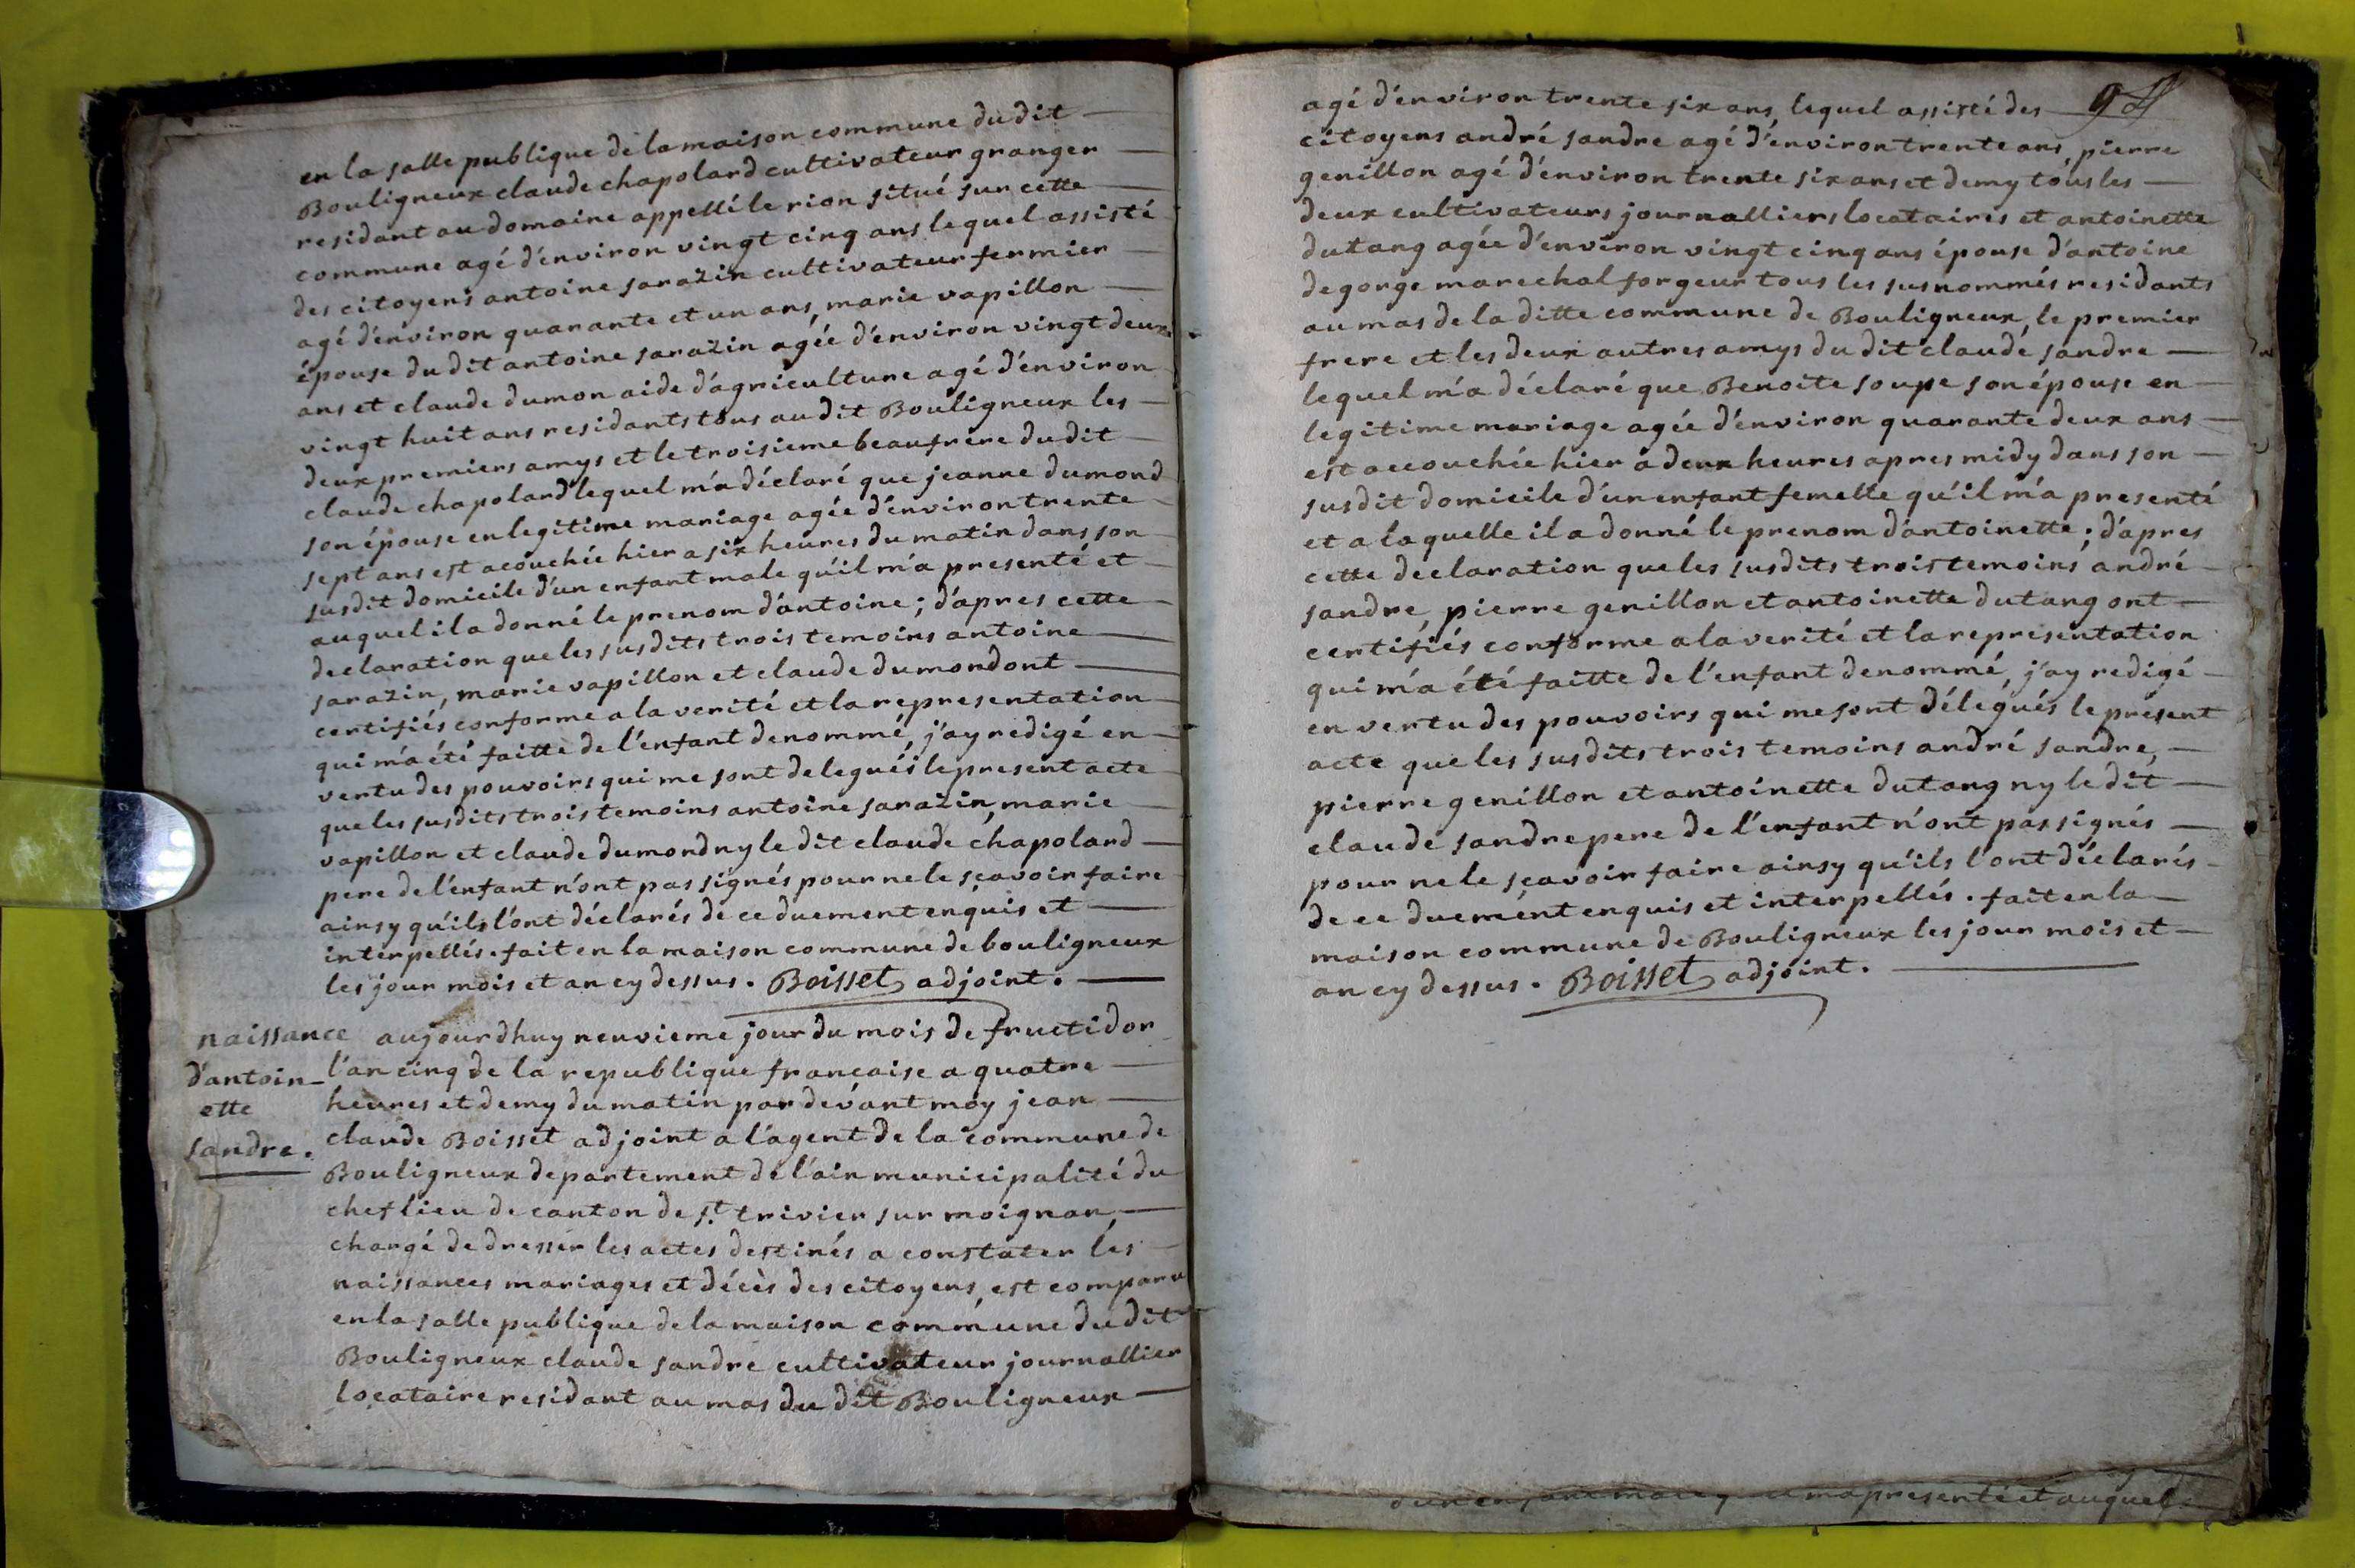 en la salle publique de la maison commune du dit
Bouligneux claude chapoland cultivateur granger
residant au domaine appellé le rion situé sur cette
commune agé d'énviron vingt cinq ans lequel assisté
des citoyens antoine sarazin cultivateur fermier
agé d'énviron quarante et un ans, marie vapillon
épouse du dit antoine sarazin agée d'énviron vingt deux
ans et claude dumon aide d'agriculture agé d'énviron
vingt huit ans residants tous au dit Bouligneux les
deux premiers amys et le troisieme beaufrere du dit
claude chapoland lequel m'a déclaré que jeanne dumond
son épouse en legitime mariage agée d'énviron trente
sept ans est acouchée hier a six heures du matin dans son
susdit domicile d'un enfant male qu'il m'a presenté et
auquel il a donné le prenom d'antoine ; d'apres cette
declaration que les susdits trois temoins antoine
sarazin, marie vapillon et claude dumond ont
certifiés conforme a la verité et la representation
qui m'a été faitte de l'enfant denommé, j'ay redigé en
vertu des pouvoirs qui me sont delegués le present acte
que les susdits trois temoins antoine sarazin, marie
vapillon et claude dumond ny le dit claude chapoland
pere de l'enfant n'ont pas signés pour ne le sçavoir faire
ainsy qu'ils l'ont déclarés de ce duement enquis et
interpellés . fait en la maison commune de bouligneux
les jour mois et an cy dessus . Boisset adjoint .
naissance
d'antoin-
ette
sandre .
aujourdhuy neuvieme jour du mois de fructidor
l'an cinq de la republique francaise a quatre
heures et demy du matin par dévant moy jean
claude Boisset adjoint a l'agent de la commune de
Bouligneux departement de l'ain municipalité du
chef lieu de canton de st. trivier sur moignan,
chargé de dresser les actes destinés a constater les
naissances mariages et décès des citoyens, est comparu
en la salle publique de la maison commune du dit
Bouligneux claude sandre cultivateur journallier
locataire residant au mas du dit Bouligneux
94
agé d'énviron trente six ans, lequel assisté des
citoyens andré sandre agé d'énviron trente ans, pierre
genillon agé d'énviron trente six ans et demy tous les
deux cultivateurs journalliers locataires et antoinette
dutang agée d'énviron vingt cinq ans épouse d'antoine
degorge marechal forgeur tous les susnommés residants
au mas de la ditte commune de Bouligneux, le premier
frere et les deux autres amys du dit claude sandre
lequel m'a déclaré que Benoite soupe son épouse en
legitime mariage agée d'énviron quarante deux ans
est accouchée hier a deux heures apres midy dans son
susdit domicile d'un enfant femelle qu'il m'a presenté
et a laquelle il a donné le prenom d'antoinette ; d'apres
cette declaration que les susdits trois temoins andré
sandre, pierre genillon et antoinette dutang ont
certifiés conforme a la verité et la representation
qui m'a été faitte de l'enfant denommé, j'ay redigé
en vertu des pouvoirs qui me sont délegués le présent
acte que les susdits trois temoins andré sandre,
pierre genillon et antoinette dutang ny le dit
claude sandre pere de l'enfant n'ont pas signés
pour ne le sçavoir faire ainsy qu'ils l'ont déclarés
de ce duement enquis et interpellés . fait en la
maison commune de Bouligneux les jour mois et
an cy dessus . Boisset adjoint .
m'a presenté et auquel